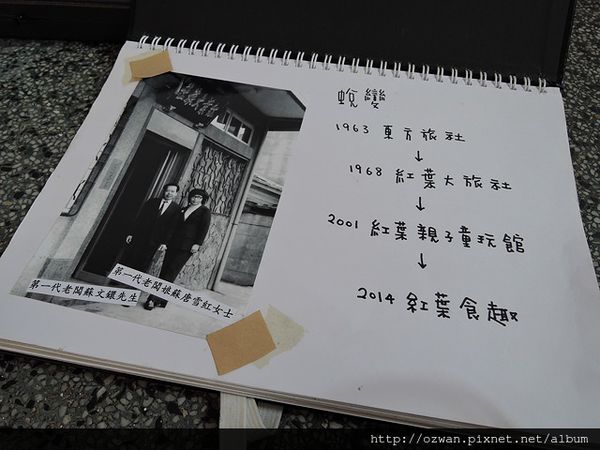 蛻變
1963 東方旅社
↓
1968 紅葉大旅社
↓
2001 紅葉親子童玩館
↓
2014 紅葉食趣
第一代老闆娘蘇唐雪紅女士
第一代老闆蘇文鐶先生
http://ozwan.pixnet.net/album